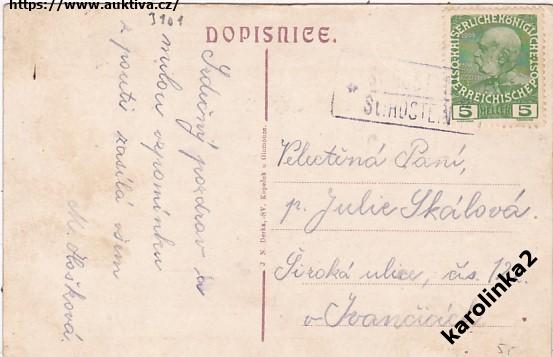 https://www.auktiva.cz/
3101
DOPISNICE.
Srdečný pozdrav a
milou vzpomínku
z pouti zasílá všem
M. Hašková.
J. N. Derka, SV. Kopeček u Olomouce.
SCHOSTEN
KAISERLICHE KÖNIGLICHE
ÖSTERREICHISCHE
5 HELLER 5
Velectěná Paní,
p. Julie Skálová.
Široká ulice, čís. 12
v Ivančicích
karolinka2
5,-